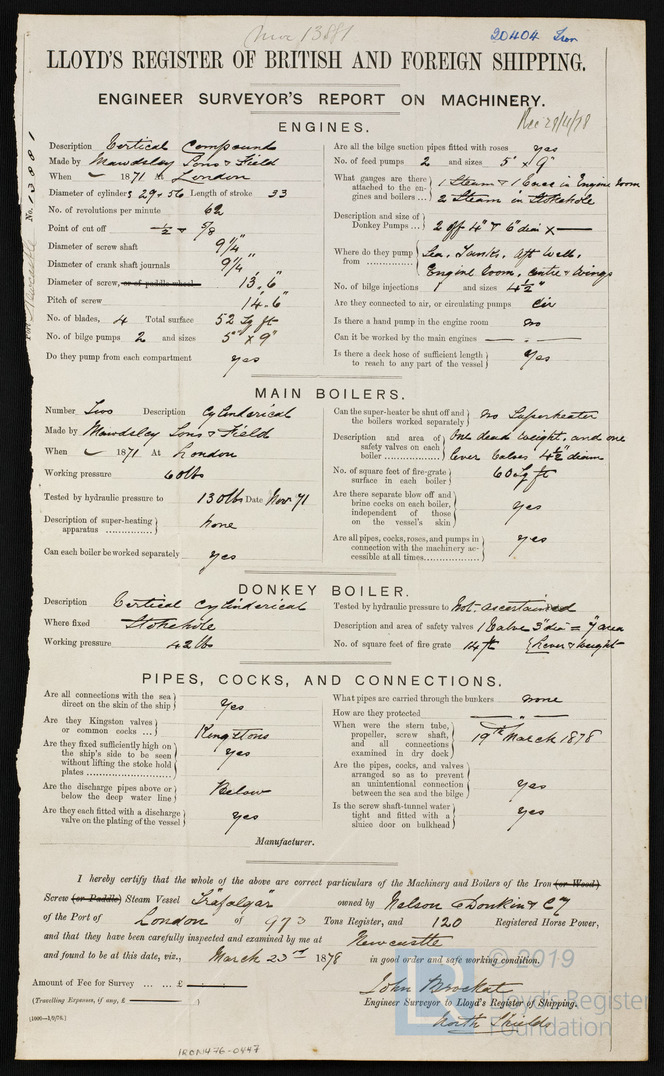 Nwc 13881
20404 Iron
LLOYD'S REGISTER OF BRITISH AND FOREIGN SHIPPING.
ENGINEER SURVEYOR'S REPORT ON MACHINERY.
Rec 29/4/78
No. 13881
Port Newcastle
ENGINES.
Description Vertical Compound
Made by Mawdsley Sons & Field
When 1871 At London
Diameter of cylinders 29 & 56 Length of stroke 33
No. of revolutions per minute 62
Point of cut off 1/2 & 5/8
Diameter of screw shaft 9 1/4"
Diameter of crank shaft journals 9 1/4"
Diameter of screw, or of paddle wheel 13.6"
Pitch of screw 14.6"
No. of blades, 4 Total surface 52 Sq ft
No. of bilge pumps 2 and sizes 5" x 9"
Do they pump from each compartment yes
Are all the bilge suction pipes fitted with roses yes
No. of feed pumps 2 and sizes 5" x 9"
What gauges are there attached to the engines and boilers ... 1 Steam & 1 Vacm in Engine Room
2 Steam in Stokehole
Description and size of Donkey Pumps ... 2 off 4" & 6" dia x —
Where do they pump from Sea, Tanks, Aft Well,
Engine Room, Centre & Wings
No. of bilge injections 1 and sizes 4 1/2"
Are they connected to air, or circulating pumps Cir
Is there a hand pump in the engine room no
Can it be worked by the main engines — " —
Is there a deck hose of sufficient length to reach to any part of the vessel yes
MAIN BOILERS.
Number Two Description Cylinderical
Made by Mawdsley Sons & Field
When 1871 At London
Working pressure 60 lbs
Tested by hydraulic pressure to 130 lbs Date Nov 71
Description of super-heating apparatus none
Can each boiler be worked separately yes
Can the super-heater be shut off and the boilers worked separately no Superheater
Description and area of safety valves on each boiler One dead weight, and one
lever Valves 4 1/2" diam
No. of square feet of fire-grate surface in each boiler 60 Sq ft
Are there separate blow off and brine cocks on each boiler, independent of those on the vessel's skin yes
Are all pipes, cocks, roses, and pumps in connection with the machinery accessible at all times yes
DONKEY BOILER.
Description Vertical Cylinderical
Where fixed Stokehole
Working pressure 42 lbs
Tested by hydraulic pressure to Not ascertained
Description and area of safety valves 1 Valve 3" dia = 7" area
No. of square feet of fire grate 14 ft Lever & Weight
PIPES, COCKS, AND CONNECTIONS.
Are all connections with the sea direct on the skin of the ship yes
Are they Kingston valves or common cocks ... Kingstons
Are they fixed sufficiently high on the ship's side to be seen without lifting the stoke hold plates yes
Are the discharge pipes above or below the deep water line Below
Are they each fitted with a discharge valve on the plating of the vessel yes
What pipes are carried through the bunkers none
How are they protected — " —
When were the stern tube, propeller, screw shaft, and all connections examined in dry dock 19th March 1878
Are the pipes, cocks, and valves arranged so as to prevent an unintentional connection between the sea and the bilge yes
Is the screw shaft-tunnel water tight and fitted with a sluice door on bulkhead yes
Manufacturer.
I hereby certify that the whole of the above are correct particulars of the Machinery and Boilers of the Iron (or Wood)
Screw (or Paddle) Steam Vessel "Trafalgar" owned by Nelson & Donkin & Cy
of the Port of London of 973 Tons Register, and 120 Registered Horse Power,
and that they have been carefully inspected and examined by me at Newcastle
and found to be at this date, viz., March 23rd 1878 in good order and safe working condition.
Amount of Fee for Survey ... ... £
(Travelling Expenses, if any, £ )
John Brockat
Engineer Surveyor to Lloyd's Register of Shipping.
North Shields
[1000—1/2/76.]
IRON476-0447
LR
© 2019
Lloyd's Register
Foundation